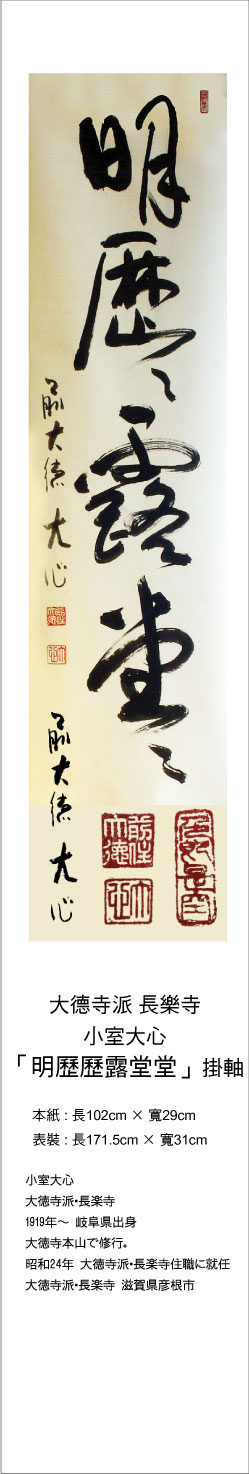 明歷〻露堂〻
前大徳大心
前大徳大心
大德寺派 長樂寺
小室大心
「明歷歷露堂堂」掛軸
本紙：長102cm × 寬29cm
表裝：長171.5cm × 寬31cm
小室大心
大徳寺派・長楽寺
1919年～ 岐阜県出身
大徳寺本山で修行。
昭和24年 大徳寺派・長楽寺住職に就任
大徳寺派・長楽寺 滋賀県彦根市